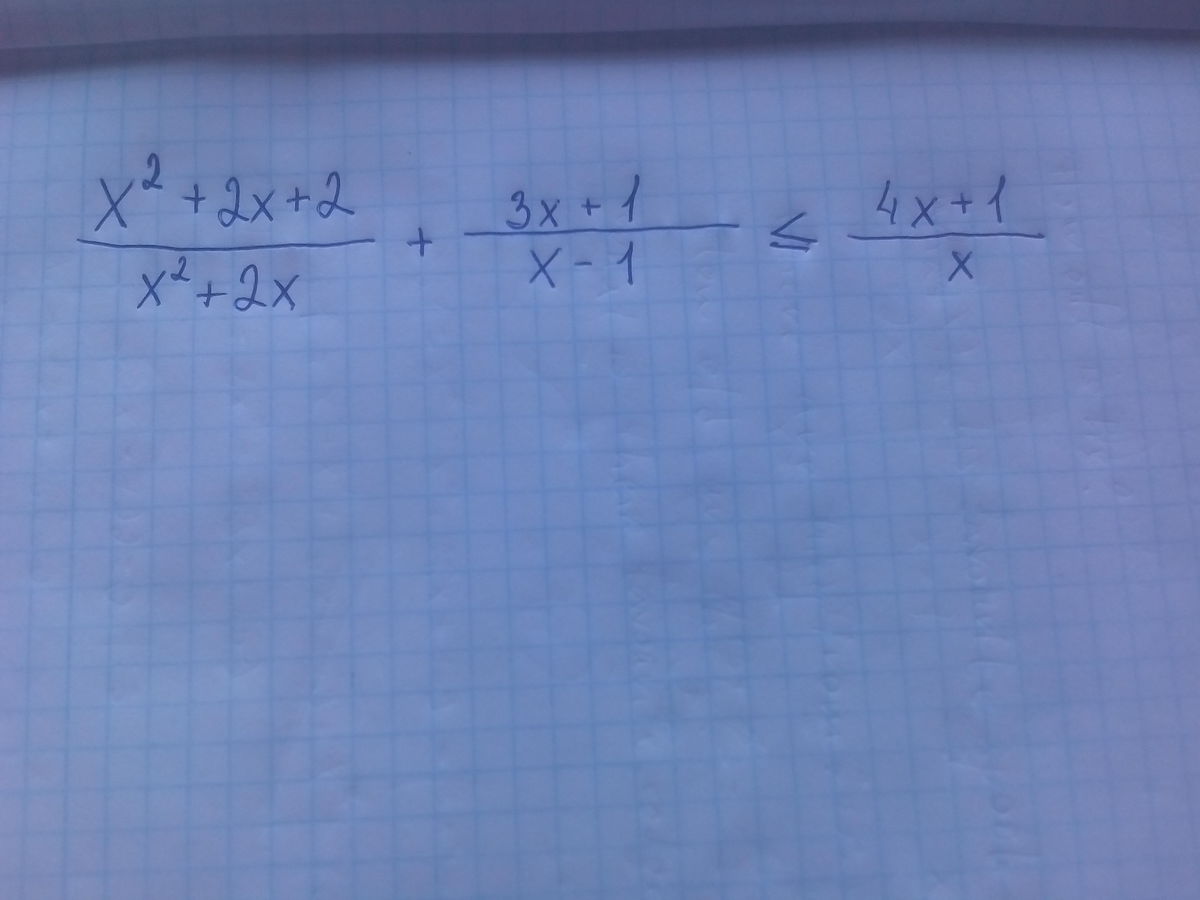 (x²+2x+2)/(x²+2x) + (3x+1)/(x-1) ≤ (4x+1)/x